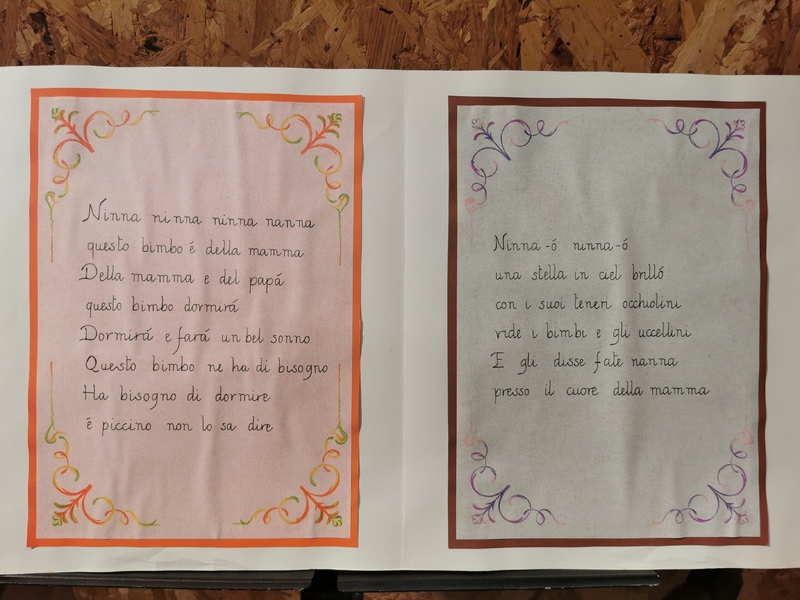 Ninna ninna ninna nanna
questo bimbo é della mamma
Della mamma e del papá
questo bimbo dormirá
Dormirá e fará un bel sonno
Questo bimbo ne ha di bisogno
Ha bisogno di dormire
é piccino non lo sa dire
Ninna-ó ninna-ó
una stella in ciel brilló
con i suoi teneri occhiolini
vide i bimbi e gli uccellini
E gli disse fate nanna
presso il cuore della mamma